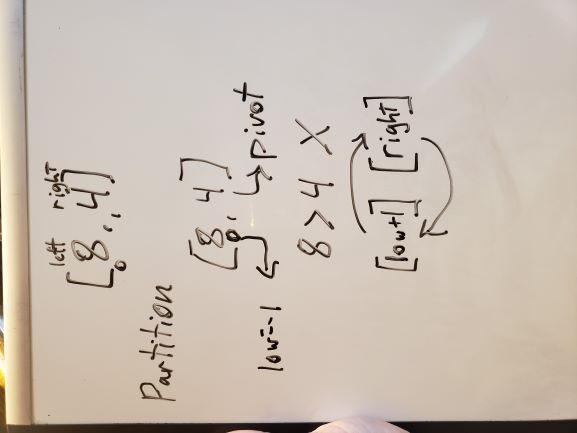 left right
[8, 4]
0 1
Partition
[8, 4]
0
low=-1 pivot
8>4 X
[low+1] [right]